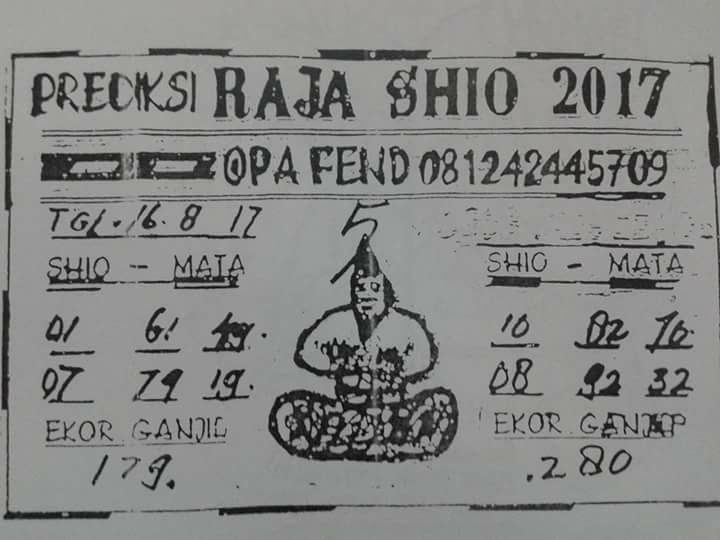 PREDIKSI RAJA SHIO 2017
@PA FEND 081242445709
TGL. 16. 8 17
5
SHIO - MATA
01 61 49.
07 79 19.
EKOR GANJIL
179.
SHIO - MATA
10 82 76
08 92 32
EKOR
.280